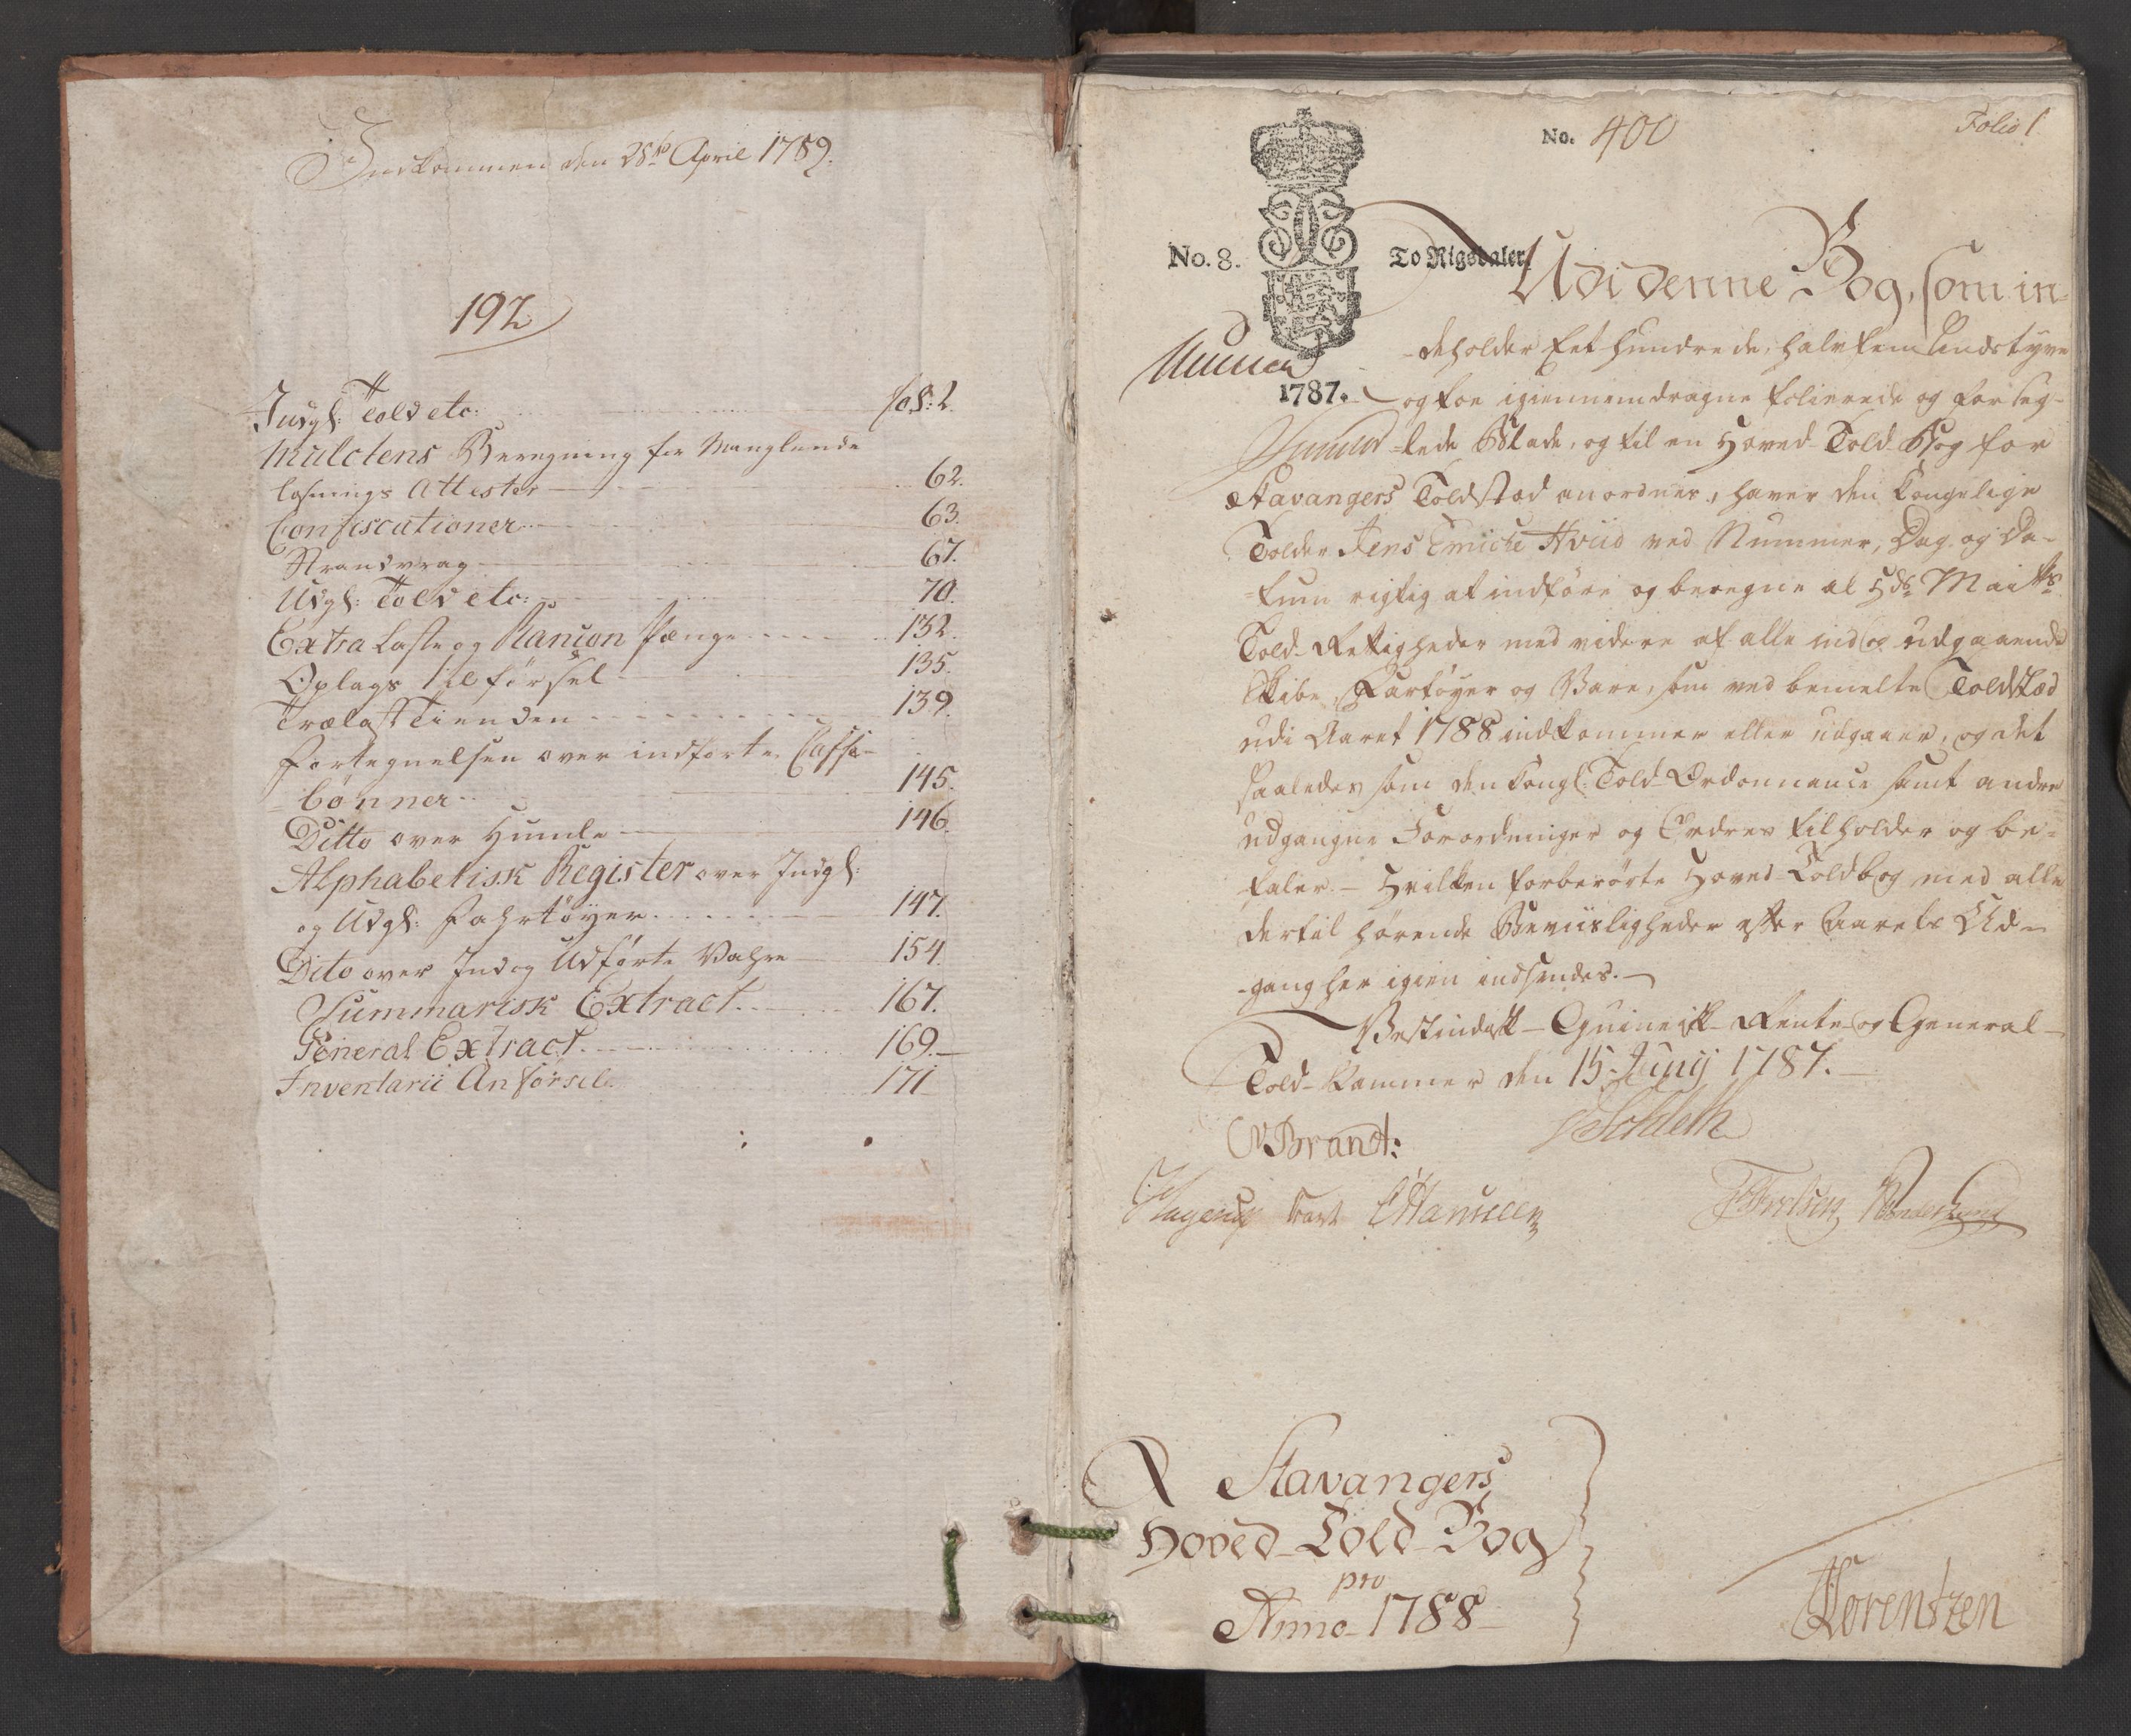 Indkommen den 28de April 1789.
192
Indgl: Told etc: fol: 2.
Mulctens Beregning for Manglende
losnings Attester 62.
Confiscationer 63.
Strandvrag 67.
Udgl: Told etc: 70.
Extra Laste og Rancon Penge 132.
Oplags Tilførsel 135.
Trælast Tienden 139.
Fortegnelsen over indførte Caffe-
bønner 145.
Ditto over Humle 146.
Alphabetisk Register over Indgl:
og Udgl: Fahrtøyer 147.
Dito over Ind og Udførte Vahre 154.
Summarisk Extract 167.
General Extract 169.
Inventarii Anførsel 171
No. 400
Folio 1.
No. 8. To Rigsdaler.
1787.
Udi denne Bog, som in-
-deholder Eet hundrede, halvfemsindstyve
og toe igiennemdragne folierede og forseg-
-lede Blade, og til en Hoved-Told-Bog for
Stavangers Toldsted anordnes, haver den Kongelige
Tolder Jens Emiche Hviid ved Nummer, Dag og Da-
-tum rigtig at indføre og beregne al Hds Maits
Told-Rettigheder med videre af alle ind og udgaaende
Skibe, Fartøyer og Vare, som ved bemelte Toldsted
udi Aaret 1788 indkommer eller udgaaer, og det
saaledes som den Kongl: Told-Ordonnance samt andre
udgangne Forordninger og Ordres tilholder og be-
faler. - Hvilken forberørte Hoved-Toldbog med alle
dertil hørende Beviisligheder efter Aarets Ud-
-gang her igien indsendes.
Vestindisk-Guineisk-Rente-og General-
Told-Kammer den 15. Junij 1787.
Brandt: Schleth
Hagerup C Hanssen
Stavangers
Hoved-Told-Bog
pro
Anno 1788
Lorentzen